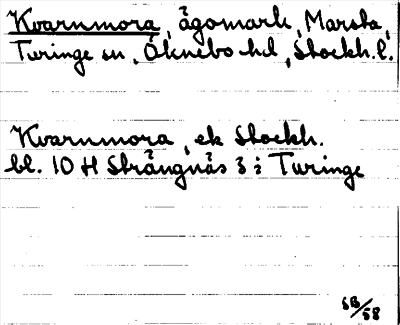 Kvarnmora, ägomark, Marsta,
Turinge sn, Öknebo hd, Stockh. l.
Kvarnmora, ek Stockh.
bl. 10 H Strängnäs 3 i Turinge
SB/58